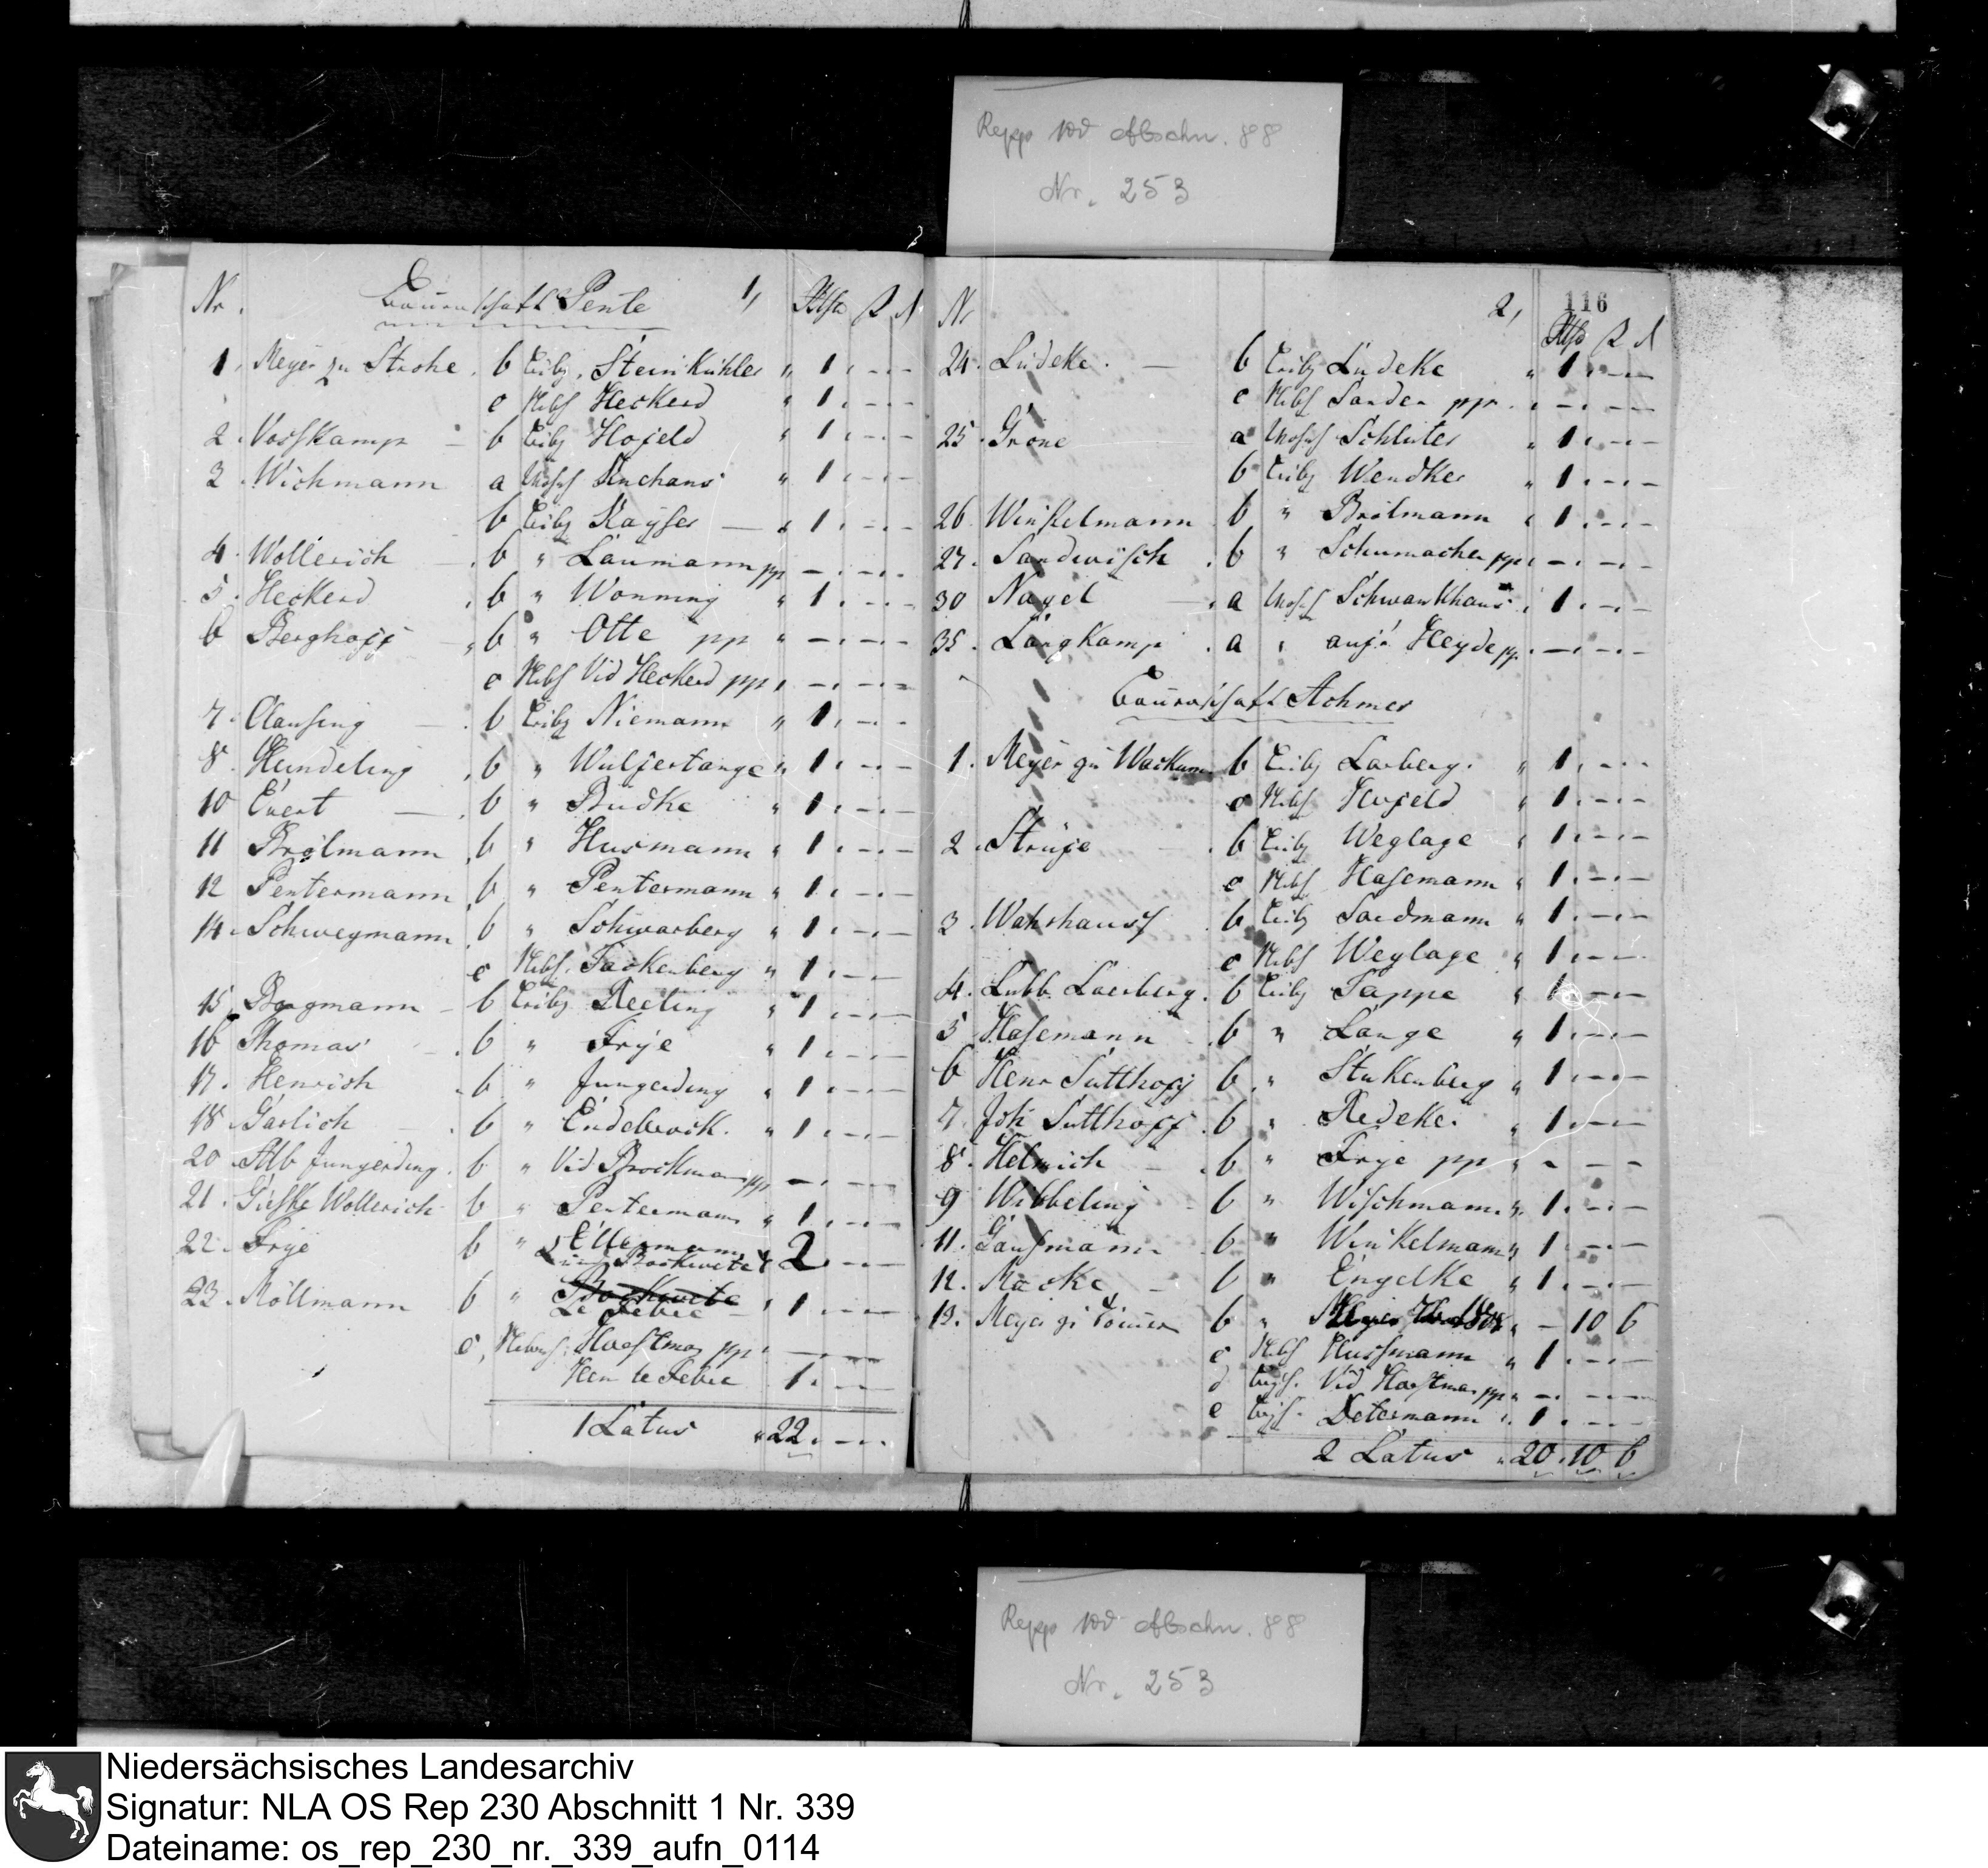 Repp 100 Abschn. 88
Nr. 253
Nr. Bauerschaft Pente 1,
1. Meyer zu Strohe b Steinkühler " 1. - -
c Heckerd " 1. - -
2. Vosskamp - b Hofeld " 1. - -
3. Wichmann a " 1. - -
b Kayser - " 1. - -
4. Wollerich b " Laumann pp - . - -
5. Heckerd b " Wonning " 1. - -
6 Berghoff b " Otte pp " - . - -
c Vid Heckerd pp - . - -
7. Clausing - b Niemann " 1. - -
8. Hundeling b " Wulfertange " 1. - -
10 Evert - b " Budke " 1. - -
11 Brölmann b " Husmann " 1. - -
12 Pentermann b " Pentermann " 1. - -
14. Schwegmann b " Schwarberg " 1. - -
c Tackenberg " 1. - -
15. Bergmann - b Reeling " 1. - -
16 Thomas b " Frye " 1. - -
17. Henrich b " Jungerding " 1. - -
18 Garlich b " Endebrock " 1. - -
20 Alb Jungerding b " Vid Brockmann pp - . - -
21. Wollerich b " Pentermann " 1. - -
22. Frye b " Ellermann
2. - -
23. Möllmann b " 1. - -
Le Febre
c, Horstman pp - . - -
Hen le Febre 1. - -
1 Latus " 22. - -
Nr 2, 116
24. Lüdeke. - b Lüdeke " 1. - -
c Sander pp - . - -
25. Grone a Schluter " 1. - -
b Wendker " 1. - -
26. Winkelmann b " Brölmann " 1. - -
27. Sandwisch b " Schumacher pp - . - -
30 Nagel - a Schwankhaus 1. - -
35. Langkamp a " auf'r Heyde pp. - . - -
Bauerschaft Achmer
1. Meyer zu Wackum b Larberg. " 1. - -
c Hofeld " 1. - -
2. Strüfe b Weglage " 1. - -
c Hasemann " 1. - -
3. Wahrhauss b Sandmann " 1. - -
c Weglage " 1. - -
4. Lubb. Laerberg. b Tappe " 1. - -
5 Hasemann b " Lange " 1. - -
6 Henr Sutthoff b " Stukenberg " 1. - -
7. Joh Sutthoff b " Redeke. " 1. - -
8. Helmich - b " Frye pp " - - -
9 Wibbeling - b " Wischmann " 1. - -
11. Gausmann b " Winkelmann " 1. - -
12. Macke - b " Engelke " 1. - -
13. Meyer b " - 10 6
c Hussmann " 1. - -
d Vid Horstman pp " - . - -
e Determann " 1. - -
2 Latus " 20. 10 6
Repp 100 Abschn. 88
Nr. 253
Niedersächsisches Landesarchiv
Signatur: NLA OS Rep 230 Abschnitt 1 Nr. 339
Dateiname: os_rep_230_nr._339_aufn_0114